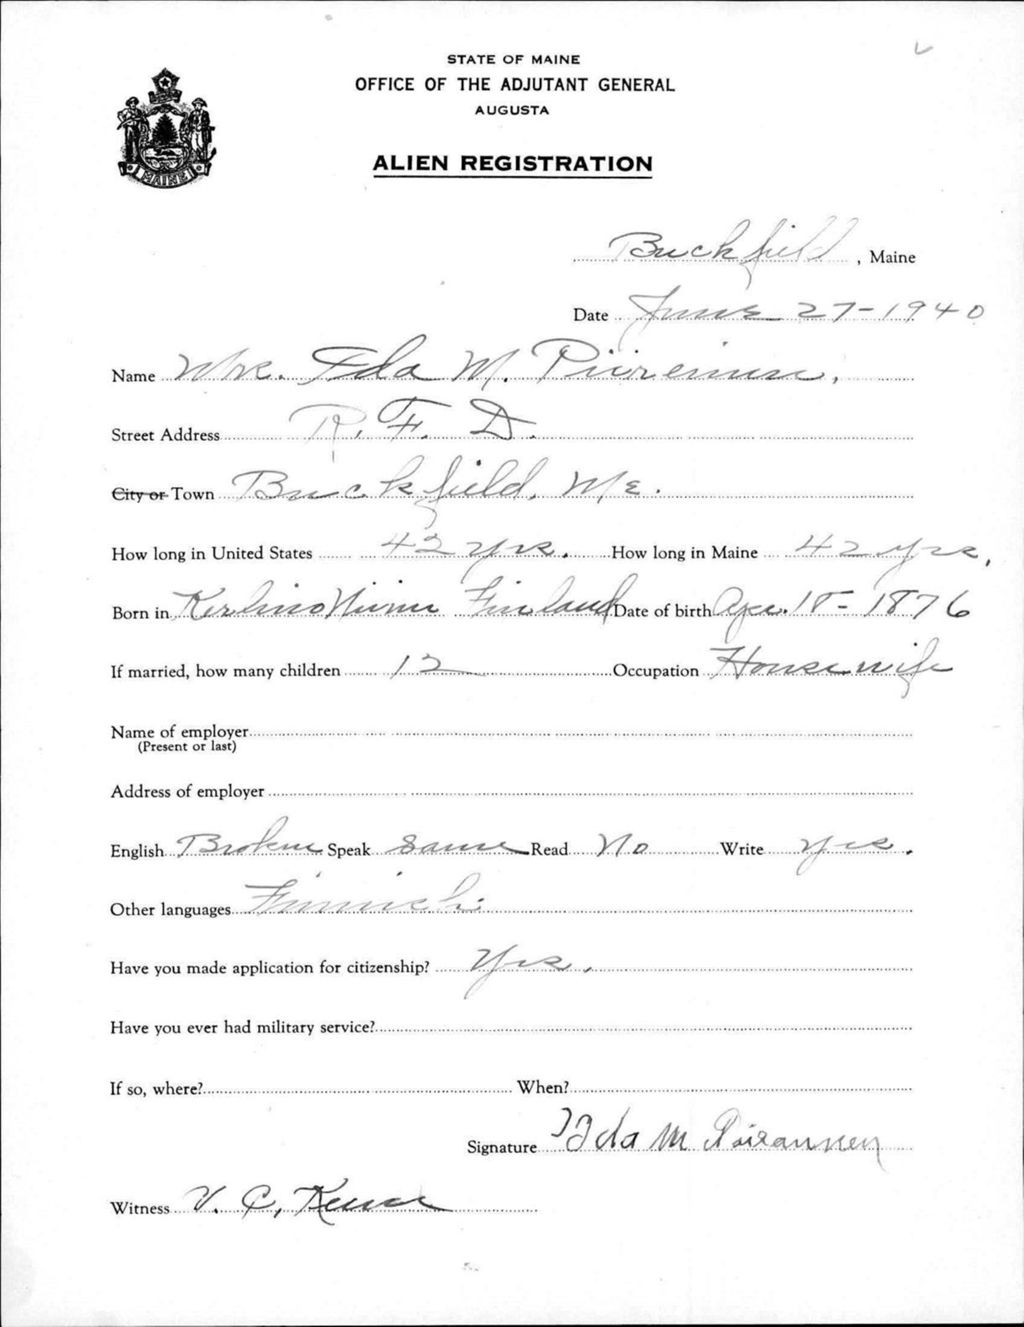 STATE OF MAINE
OFFICE OF THE ADJUTANT GENERAL
AUGUSTA
MAINE
ALIEN REGISTRATION
Buckfield, Maine
Date June 27-1940
Name Mrs. Ida M.
Street Address R. F. D.
City or Town Buckfield, Me.
How long in United States 42 yrs. How long in Maine 42 yrs.
Born in Finland Date of birth Apr. 18-1876
If married, how many children 12 Occupation Housewife
Name of employer
(Present or last)
Address of employer
English Broken Speak Same Read No Write Yes.
Other languages Finnish
Have you made application for citizenship? Yes.
Have you ever had military service?
If so, where? When?
Signature Ida M
Witness V. C.